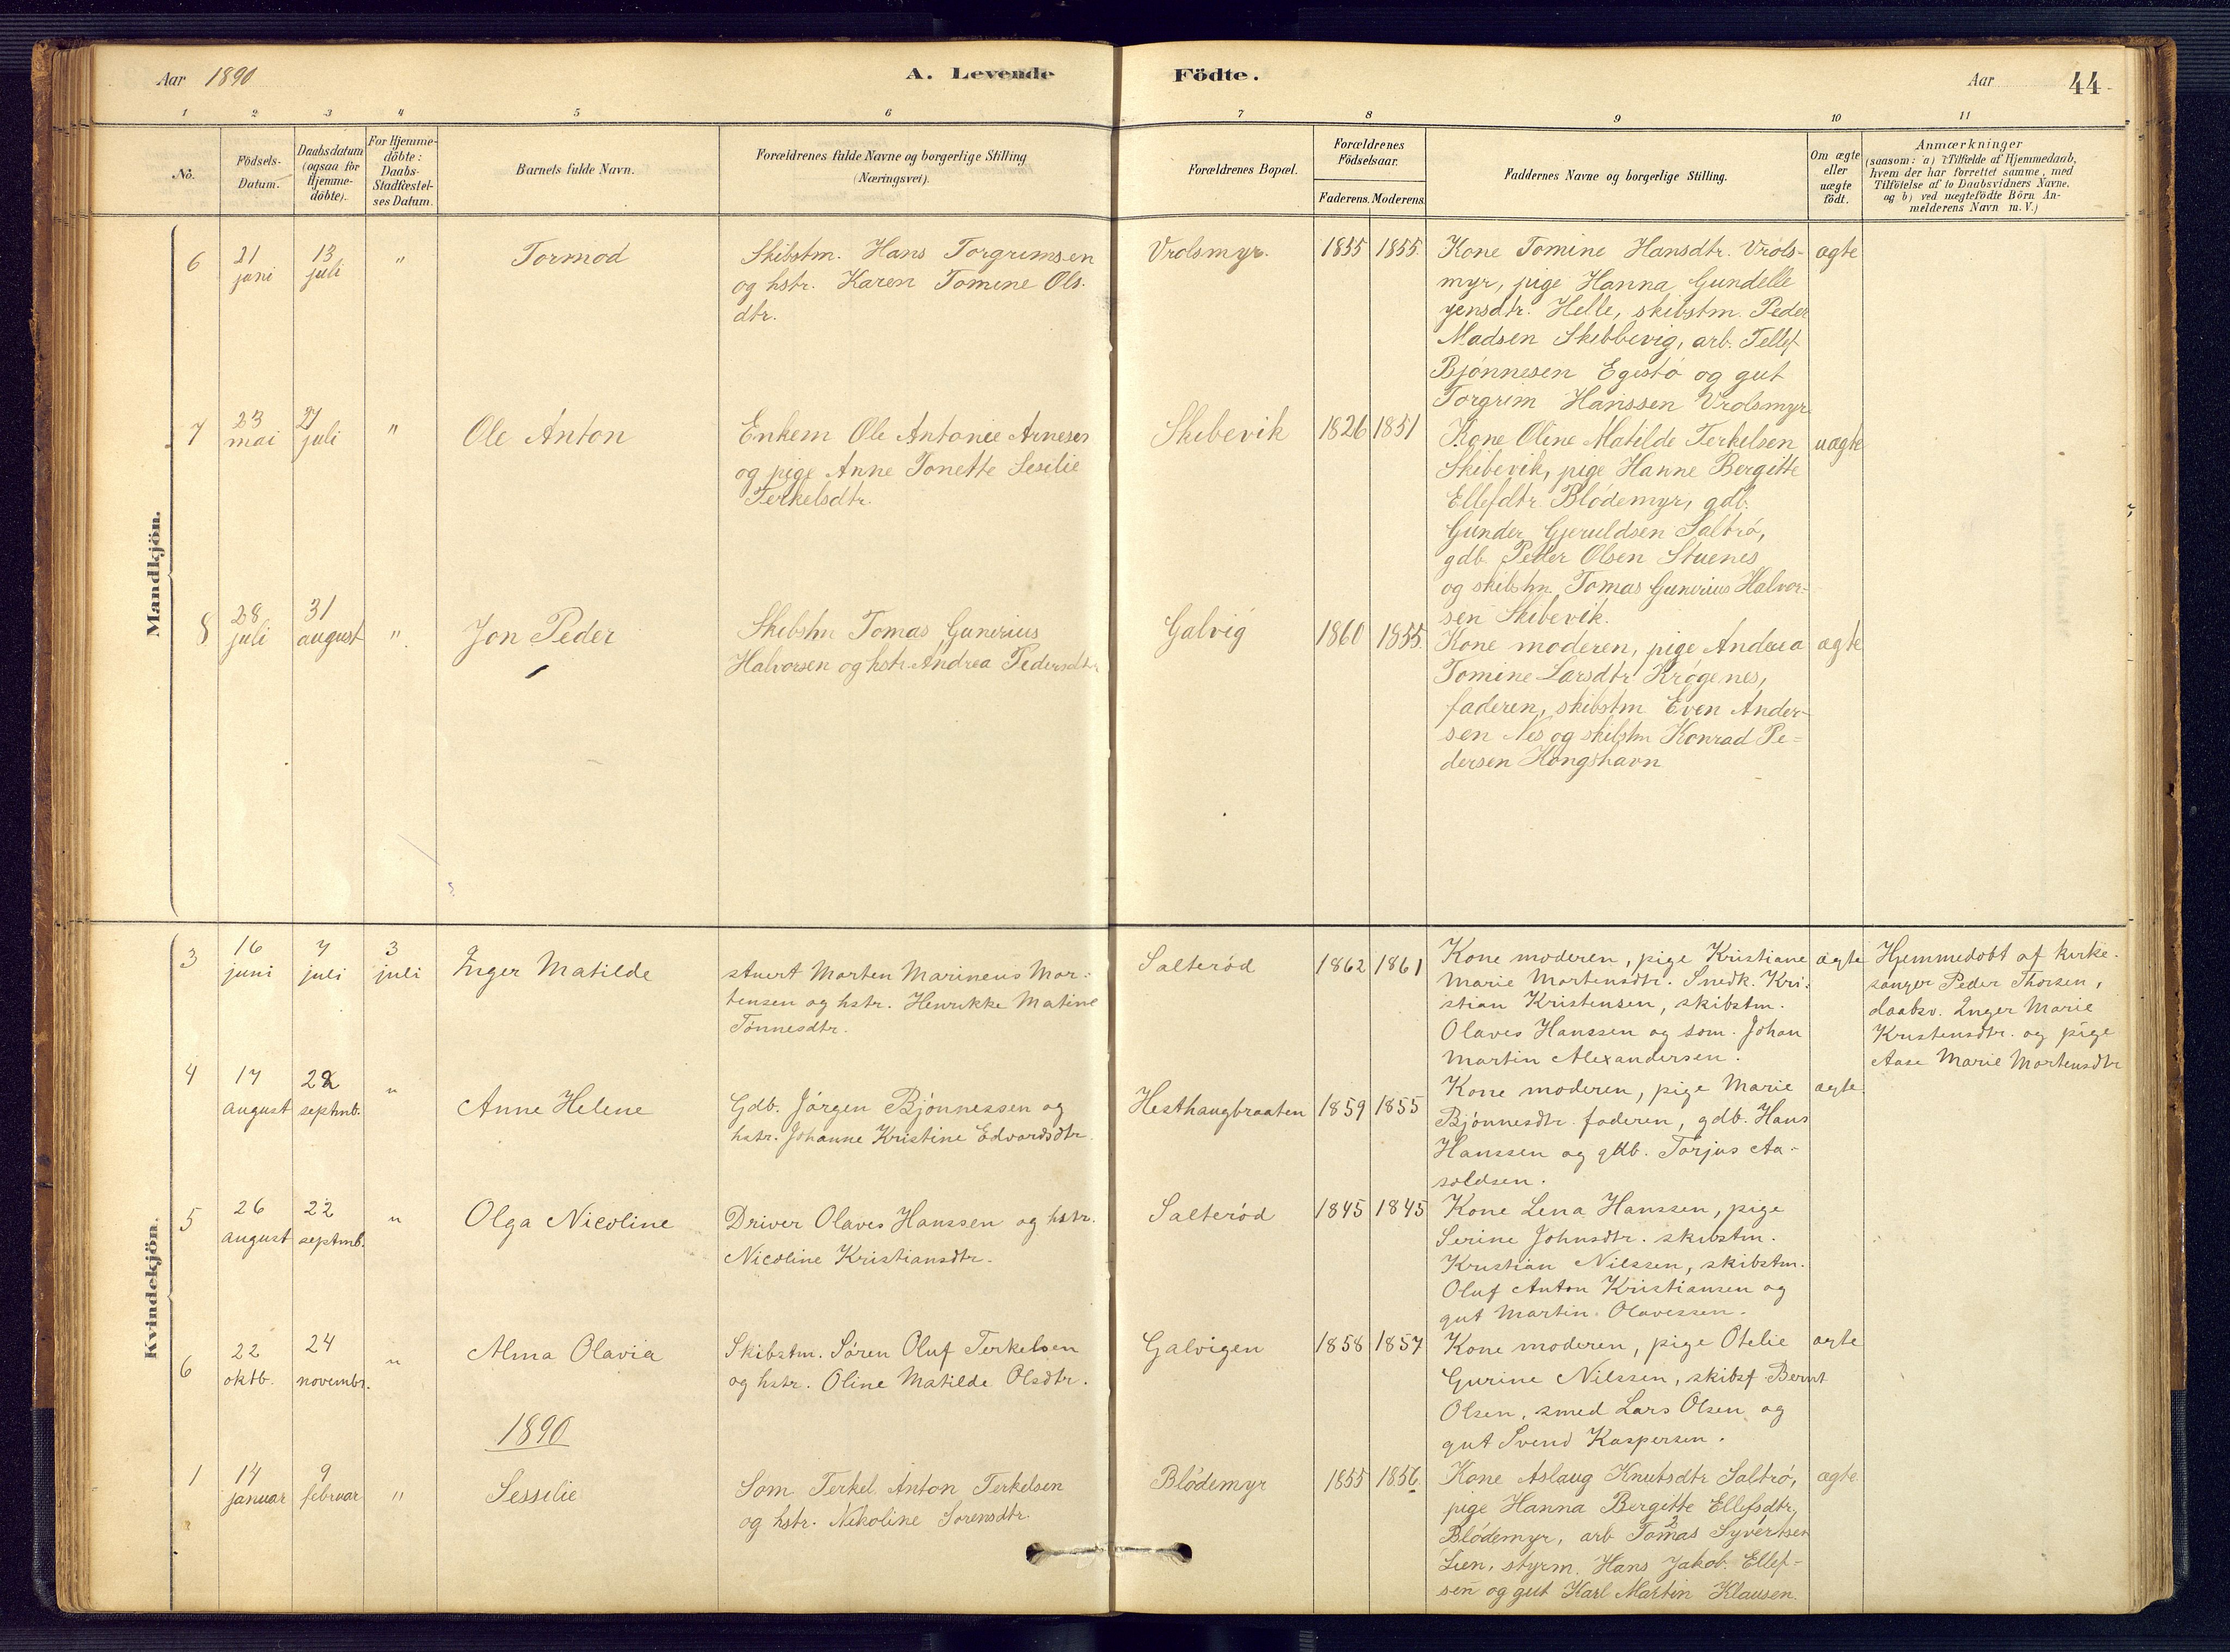 Aar 1890
A. Levende Födte.
Aar
44
1 2 3 4 5 6 7 8 9 10 11
No.
Födsels-Datum.
Daabsdatum (ogsaa for Hjemme-döbte).
For Hjemme-döbte: Daabs-Stadfæstel-ses Datum.
Barnets fulde Navn.
Forældrenes fulde Navne og borgerlige Stilling (Næringsvei).
Forældrenes Bopæl.
Forældrenes Födselsaar.
Faderens. Moderens.
Faddernes Navne og borgerlige Stilling.
Om ægte eller uægte födt.
Anmærkninger
(saasom: a) i Tilfælde af Hjemmedaab,
hvem der har forrettet samme, med
Tilföielse af to Daabsvidners Navne.
og b) ved uægtefödte Börn An-
melderens Navn m. V.)
Mandkjön.
6
21 juni
13 juli
"
Tormod
Skibstm. Hans Torgrimsen
og hstr. Karen Tomine Ols-
dtr.
Vrolsmyr.
1855 1855.
Kone Tomine Hansdtr. Vrols-
myr, pige Hanna Gundelle
Jensdtr. Helle, skibstm. Peder
Madsen Skibbevig, arb. Tellef
Bjönnesen Egestö og gut
Torgrim Hanssen Vrolsmyr.
ægte
7
23 mai
27 juli
"
Ole Anton
Enkem Ole Antonie Arnesen
og pige Anne Tonette Sesilie
Terkelsdtr.
Skibevik
1826 1851
Kone Oline Matilde Terkelsen
Skibevik, pige Hanne Bergitte
Ellefdtr Blödemyr, gdb.
Gunder Gjeruldsen Saltrö,
gdb. Peder Olsen Stuenes
og skibstm Tomas Gunerius Halvor-
sen Skibevik.
uægte
8
28 juli
31 august
"
Jon Peder
Skibstm Tomas Gunerius
Halvorsen og hstr. Andrea Pedersdtr
Galvig
1860 1855.
Kone moderen, pige Andrea
Tomine Larsdtr Krøgenes,
faderen, skibstm Even Ander-
sen Nes og skibstm Konrad Pe-
dersen Kongshavn
ægte
Kvindekjön.
3
16 juni
7 juli
3 juli
Inger Matilde
stuert Morten Marineus Mor-
tensen og hstr. Henrikke Matine
Tönnesdtr.
Salteröd
1862 1861
Kone moderen, pige Kristiane
Marie Mortensdtr. Snedk. Kri-
stian Kristensen, skibstm.
Olaves Hanssen og som. Johan
Martin Alexandersen.
ægte
Hjemmedöbt af kirke-
sanger Peder Thorsen,
daabsv. Inger Marie
Kristensdtr. og pige
Aase Marie Mortensdtr
4
17 august
22 septmb.
"
Anne Helene
Gdb. Jörgen Bjönnessen og
hstr. Johanne Kristine Edvardsdtr.
Hesthaugbraaten
1859 1855
Kone moderen, pige Marie
Bjönnesdtr. faderen, gdb. Hans
Hanssen og gdb. Torjus Aa-
soldsen.
ægte
5
26 august
22 septmb.
"
Olga Nicoline
Driver Olaves Hanssen og hstr.
Nicoline Kristiansdtr.
Salteröd
1845 1845
Kone Lena Hanssen, pige
Serine Johnsdtr. skibstm.
Kristian Nilssen, skibstm.
Oluf Anton Kristiansen og
gut Martin Olavessen.
6
22 oktb.
24 novembr.
"
Alma Olavia
Skibstm. Sören Oluf Terkelsen
og hstr. Oline Matilde Olsdtr.
Galvigen
1858 1857
Kone moderen, pige Otelie
Gurine Nilssen, skibsf Bernt
Olsen, smed Lars Olsen og
gut Svend Kaspersen.
ægte
1890
1
14 januar
9 februar
"
Sessilie
Som Terkel Anton Terkelsen
og hstr. Nikoline Sorensdtr.
Blödemyr
1855 1856
Kone Aslaug Knutsdtr Saltrö,
pige Hanna Bergitte Ellefsdtr,
Blödemyr, arb Tomas Syvertsen
Lien, styrm. Hans Jakob Ellef-
sen og gut Karl Martin Klausen.
ægte